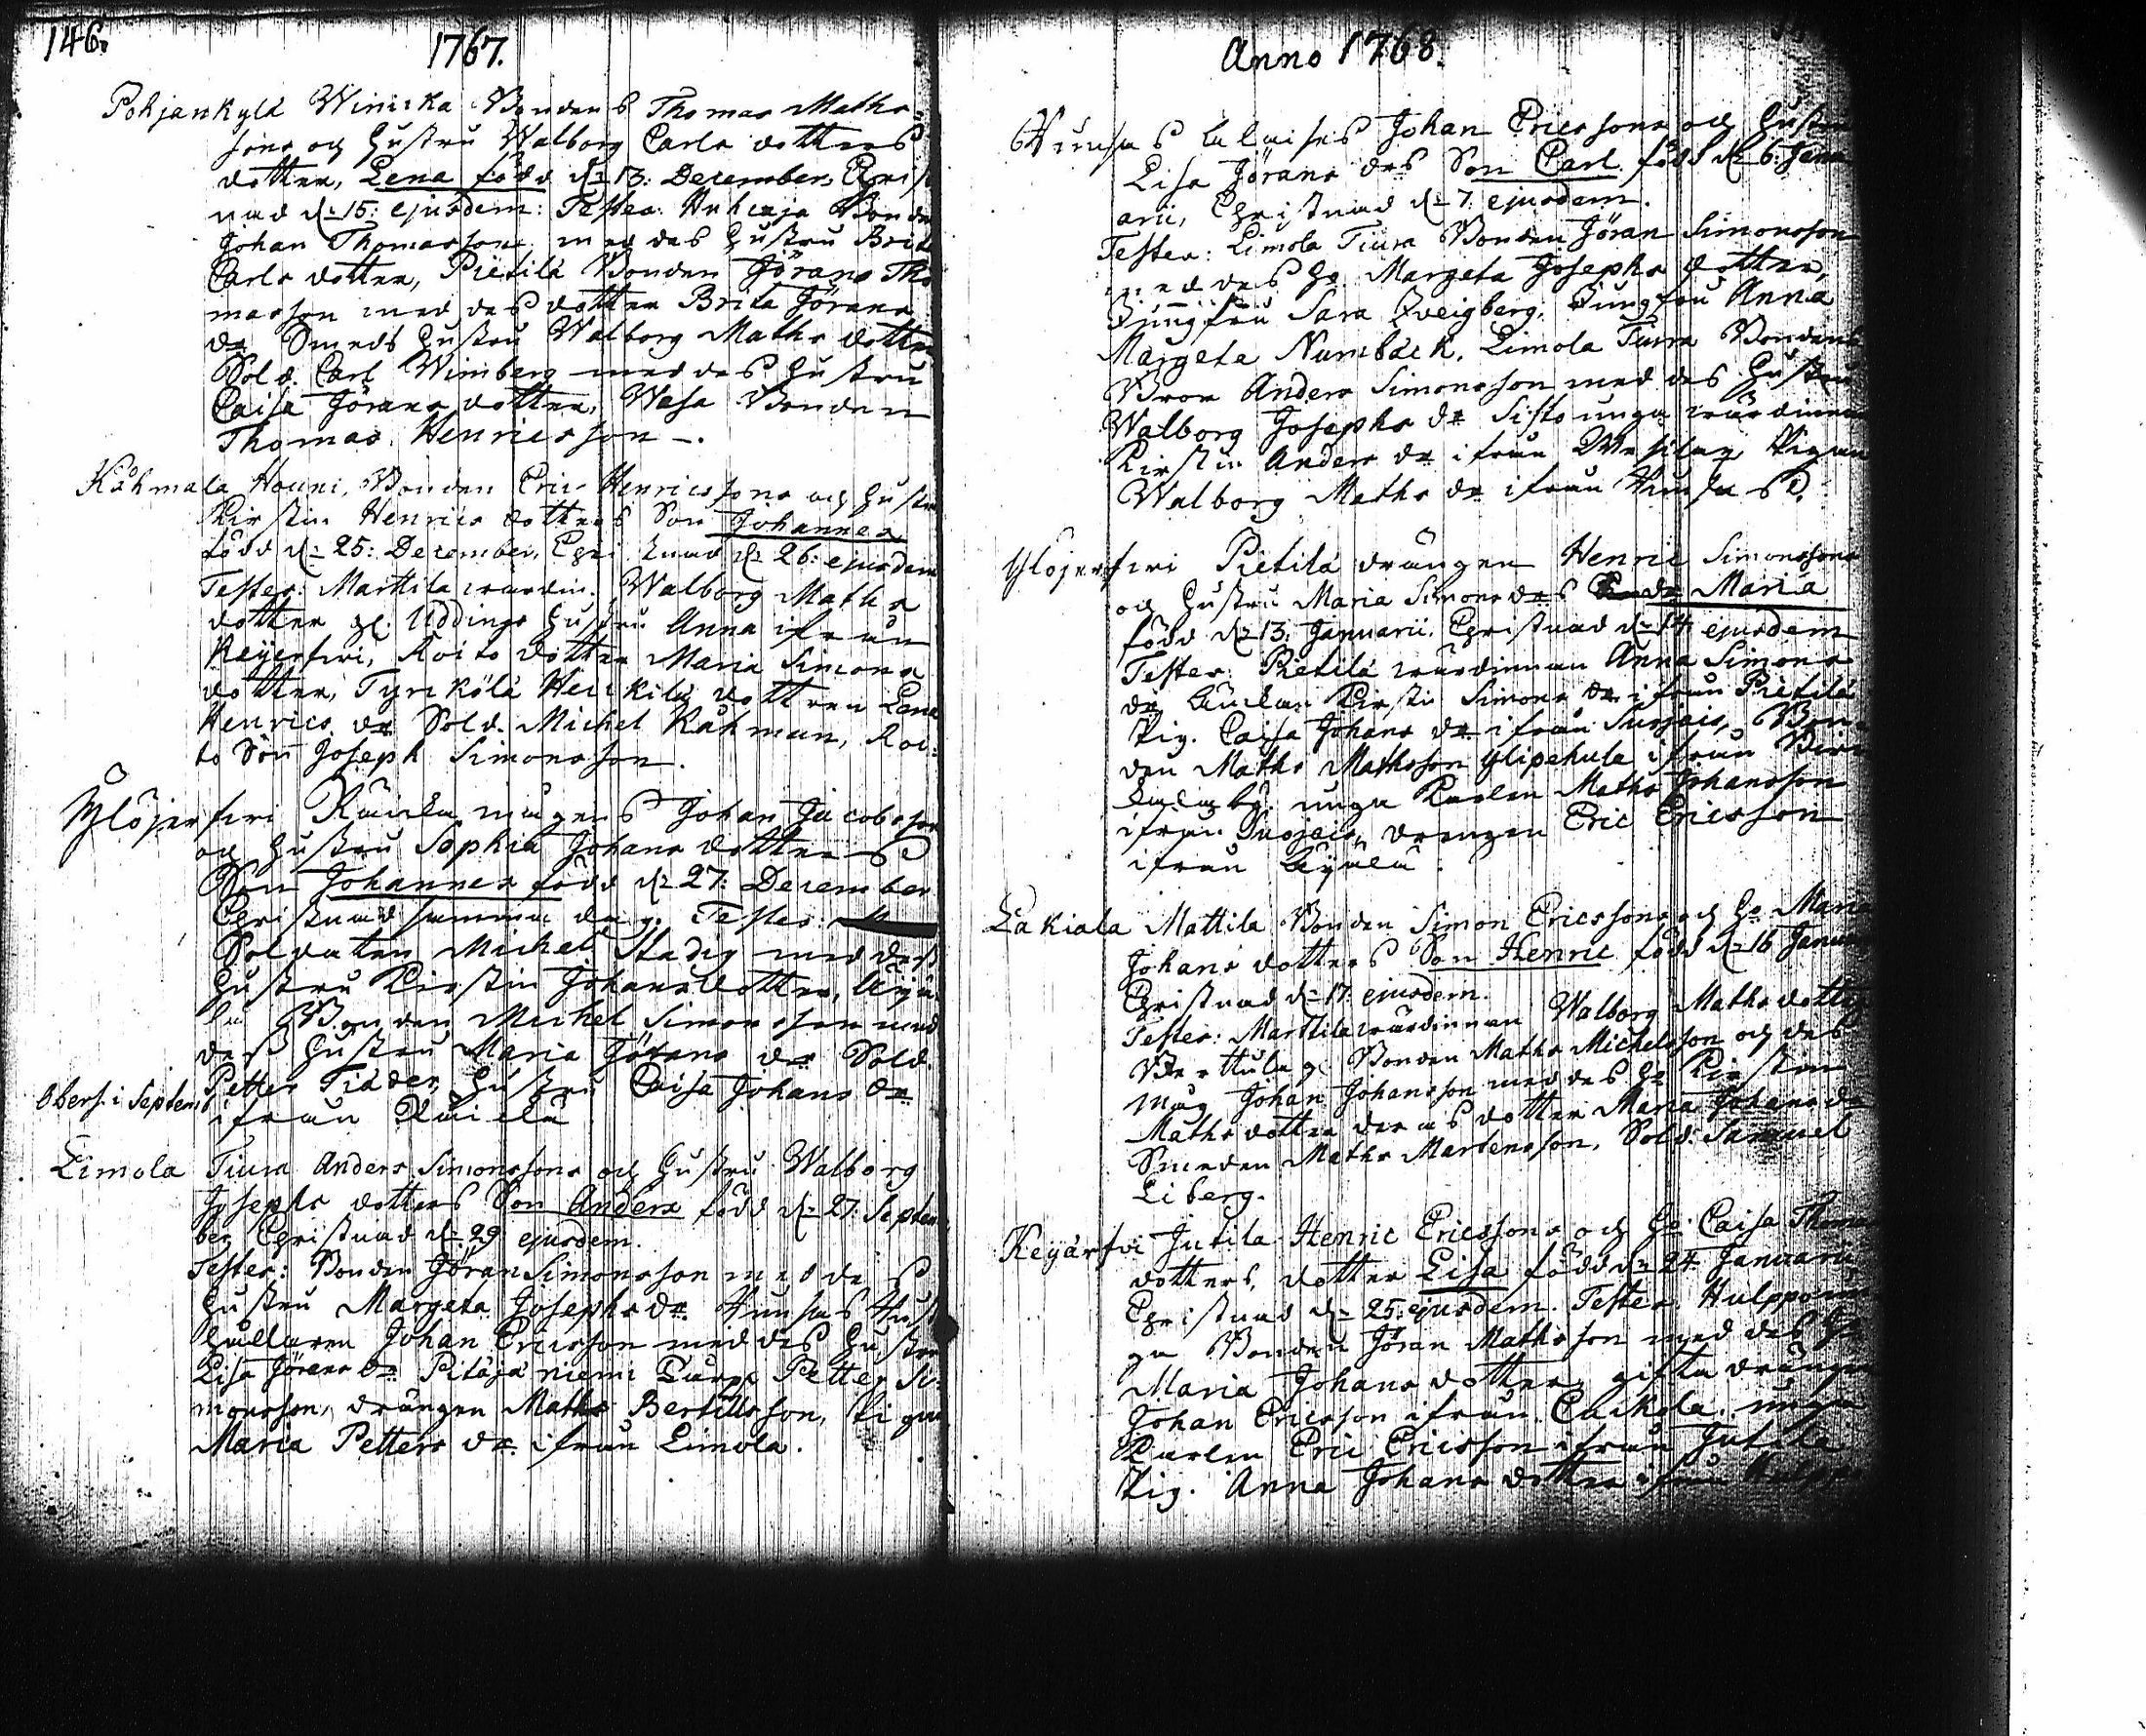 146.
1767.
Pohjankylä Winicka Bondens Thomas Maths
sons och Hustru Walborg Carls dotters
dotter, Lena född d. 13: December, Christ
nad d. 15: ejusdem: Testes: Bonden
Johan Thomasson med des hustru Brita
Carls dotter, Pietilä Bonden Jörans Tho
masson med des dotter Brita Jörans
dr Smeds hustru Walborg Maths dotter
Sold. Carl Wimberg med des hustru
Caisa Jörans dotter, Wasa Bonden
Thomas Henricsson -.
Kåhmala Houni, Bonden Eric Henricssons och hustru
Kirstin Henrics dotters Son Johannes
född d. 25: December, Christnad d. 26: ejusdem
Testes: Marttila wärdin. Walborg Maths
dotter gl. Uddings hustru Anna ifrån
Keyerfwi, Roito dotter Maria Simons
dotter, Tyrckölä Heickilä dottren Lena
Henrics dr Sold. Michel Kåhman, Roi:
to Son Joseph Simonsson.
Ylöjerfwi Räickä mågens Johan Jacobsson
och hustru Sophia Johans dotters
Son Johannes född d. 27: December
Christnad samma dag. Testes:
Soldaten Michel Stadig med dess
hustru Kirstin Johansdotter,
Bonden Michel Simonsson med
dess hustru Maria Jörans dr Sold.
Petter Tiäder hustru Caisa Johans dr
ifrån Räickä
Obers. i Septemb
Limola Tiura Anders Simonssons och hustru Walborg
Josephs dotters Son Anders född d. 27: Septem
ber Christnad d. 29: ejusdem.
Testes: Bonden Jöran Simonsson med des
hustru Margeta Josephs dr. Hunsas Hus
hållaren Johan Ericsson med des hustru
Lisa Jörans dr. Pitäjäniemi Petter Si:
monsson, drängen Maths Bertillsson, pigan
Maria Petters dr. ifrån Limola.
Anno 1768.
Hunsas Johan Ericssons och hustru
Lisa Jörans drs Son Carl född d. 6: Janu
arii, Christnad d. 7: ejusdem.
Testes: Limola Tiura Bonden Jöran Simonsson
med des ho. Margeta Josephs dotter,
Jungfru Sara Zveigberg, Jungfru Anna
Margeta Numbäck, Limola Tiura Bondens
Bror Anders Simonsson med des hustru
Walborg Josephs dr Sisto unga wärdinnan
Kirstin Anders dr ifrån Pigan
Walborg Maths dr ifrån Hunsas.
Ylöjerfwi Pietilä drängen Henric Simonssons
och hustru Maria Simons drs dr Maria
född d. 13: Januarii, Christnad d. 14: ejusdem
Testes: Pietilä wärdinnan Anna Simons
dr, Kirstin Simons dr ifrån Pietilä
Pig. Caisa Johans dr ifrån Suojais, Bon=
den Maths Mathsson ifrån
by. unga Karlen Maths Johansson
ifrån Suojais, drengen Eric Ericsson
ifrån
Lakiala Mattila Bonden Simon Ericssons och ho. Maria
Johans dotters Son Henric född d. 16 Januarii
Christnad d. 17: ejusdem.
Testes: Marttila wärdinnan Walborg Maths dotter
Perttula g. Bonden Maths Michelsson och des
måg Johan Johansson med des ho. Kirstin
Maths dotter deras dotter Maria Johans dr
Smeden Maths Mårtensson, Sold: Samuel
Liberg.
Keyärfwi Jutila Henric Ericssons och ho. Caisa Thomas
dotters, dotter Lisa född d. 24 Januarii
Christnad d. 25: ejusdem. Testes: Hulppo un
ga Bonden Jöran Mathsson med des ho
Maria Johans dotter, gifta drängen
Johan Ericsson ifrån unga
Karlen Eric Ericsson ifrån Jutila
Pig. Anna Johans dotter ifrån Hulppo